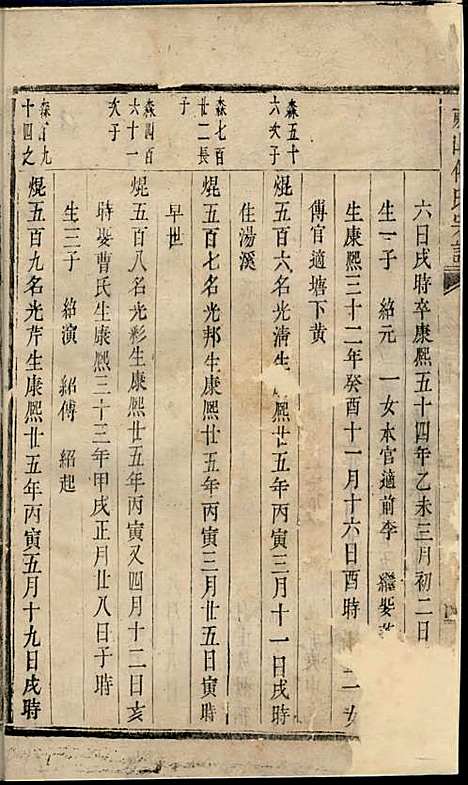 六日戌時卒康熙五十四年乙未三月初二日
生一子 紹元 一女本官適前李 繼娶
生康熙三十二年癸酉十一月十六日酉時 二女
傳官適塘下黄
森五十六次子
焜五百六名光濤生 熙廿五年丙寅三月十一日戌時
住湯溪
森七百廿二長子
焜五百七名光邦生康熙廿五年丙寅三月廿五日寅時
早世
森四百六十一次子
焜五百八名光彩生康熙廿五年丙寅又四月十二日亥
時娶曹氏生康熙三十三年甲戌正月廿八日子時
生三子 紹演 紹傅 紹起
十四之
焜五百九名光芹生康熙廿五年丙寅五月十九日戌時